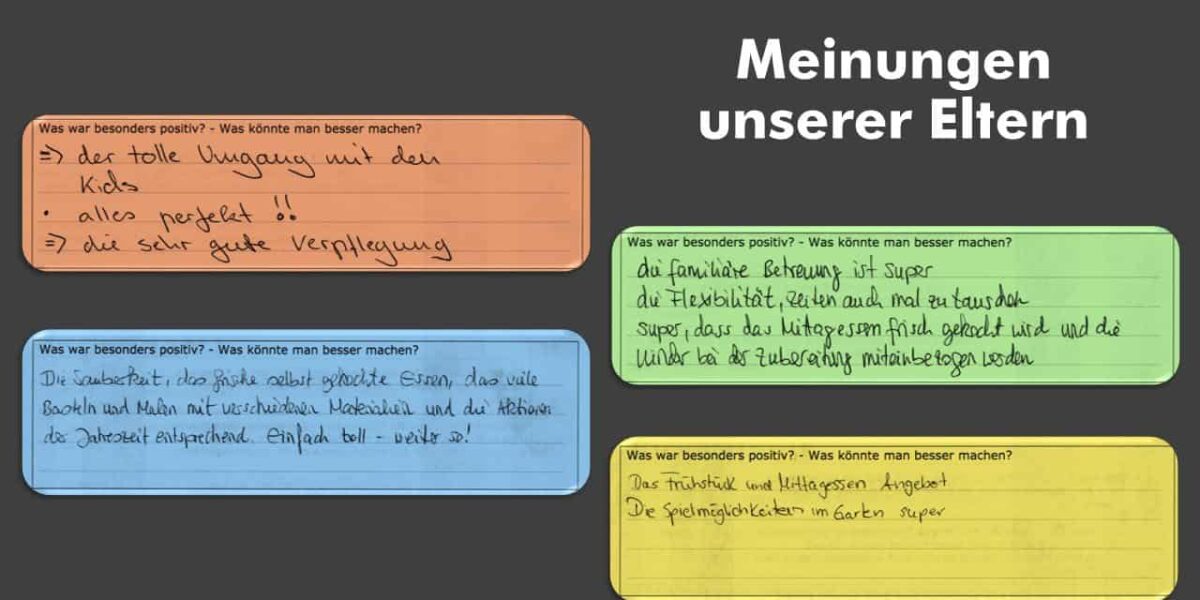 Meinungen
unserer Eltern
Was war besonders positiv? - Was könnte man besser machen?
=> der tolle Umgang mit den
Kids
• alles perfekt !!
=> die sehr gute Verpflegung
Was war besonders positiv? - Was könnte man besser machen?
die familiäre Betreuung ist super
die Flexibilität, Zeiten auch mal zu tauschen
super, dass das Mittagessen frisch gekocht wird und die
Kinder bei der Zubereitung miteinbezogen werden
Was war besonders positiv? - Was könnte man besser machen?
Die Sauberkeit, das frische selbst gekochte Essen, das viele
Basteln und Malen mit verschiedenen Materialien und die Aktionen
der Jahreszeit entsprechend. Einfach toll - weiter so!
Was war besonders positiv? - Was könnte man besser machen?
Das Frühstück und Mittagessen Angebot
Die Spielmöglichkeiten im Garten super